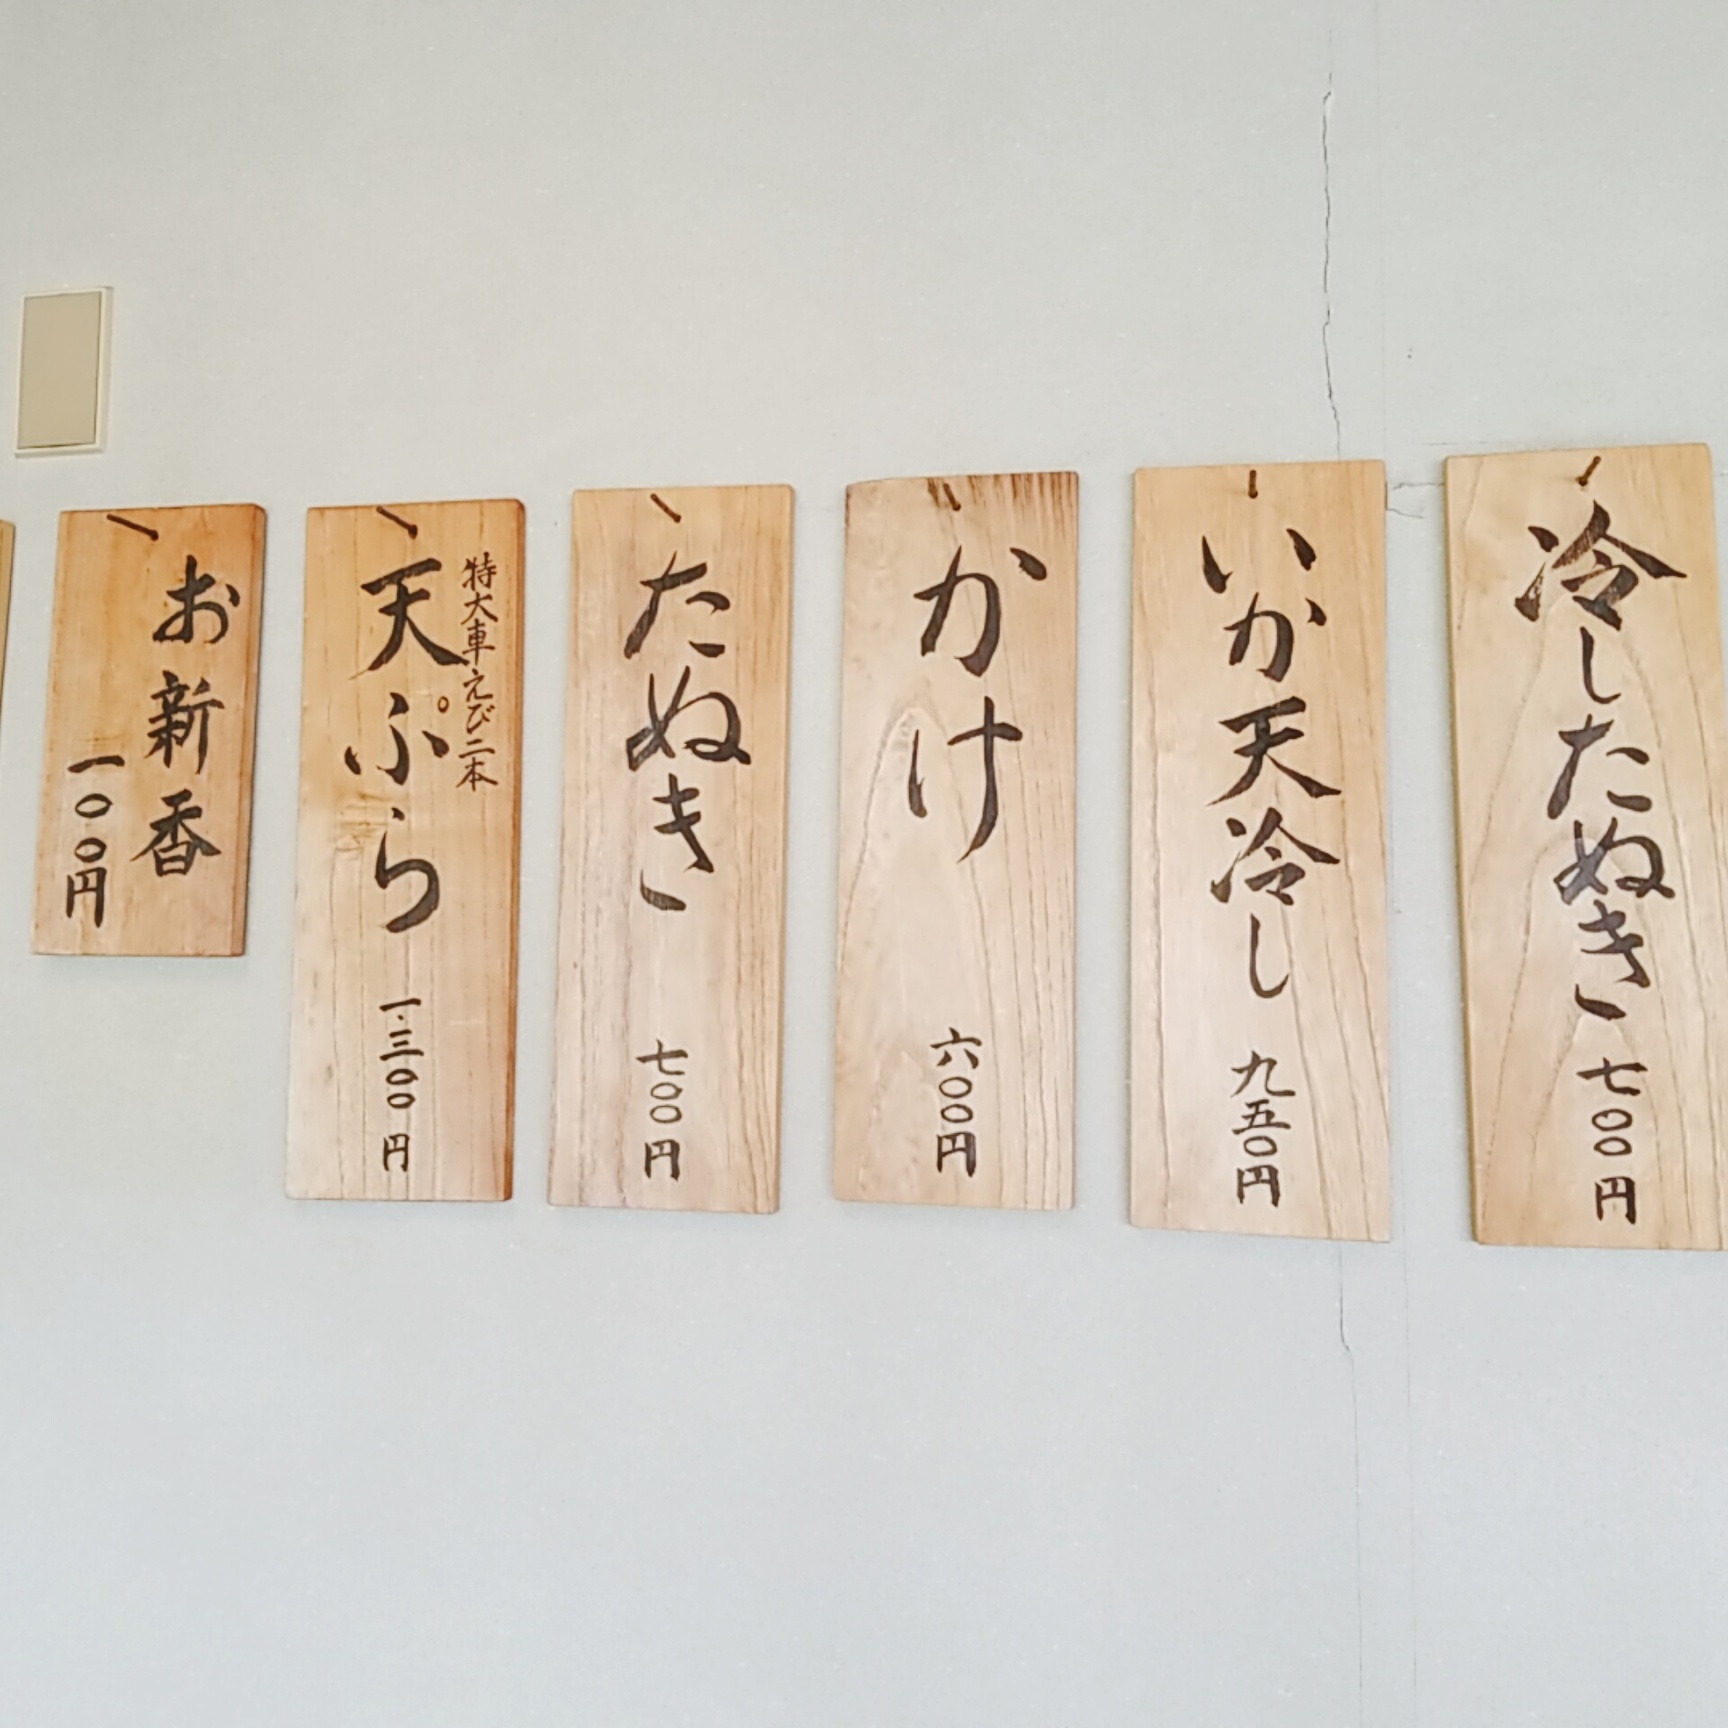 冷したぬき 七〇〇円
いか天冷し 九五〇円
かけ 六〇〇円
たぬき 七〇〇円
特大車えび二本
天ぷら 一.三〇〇円
お新香
一〇〇円